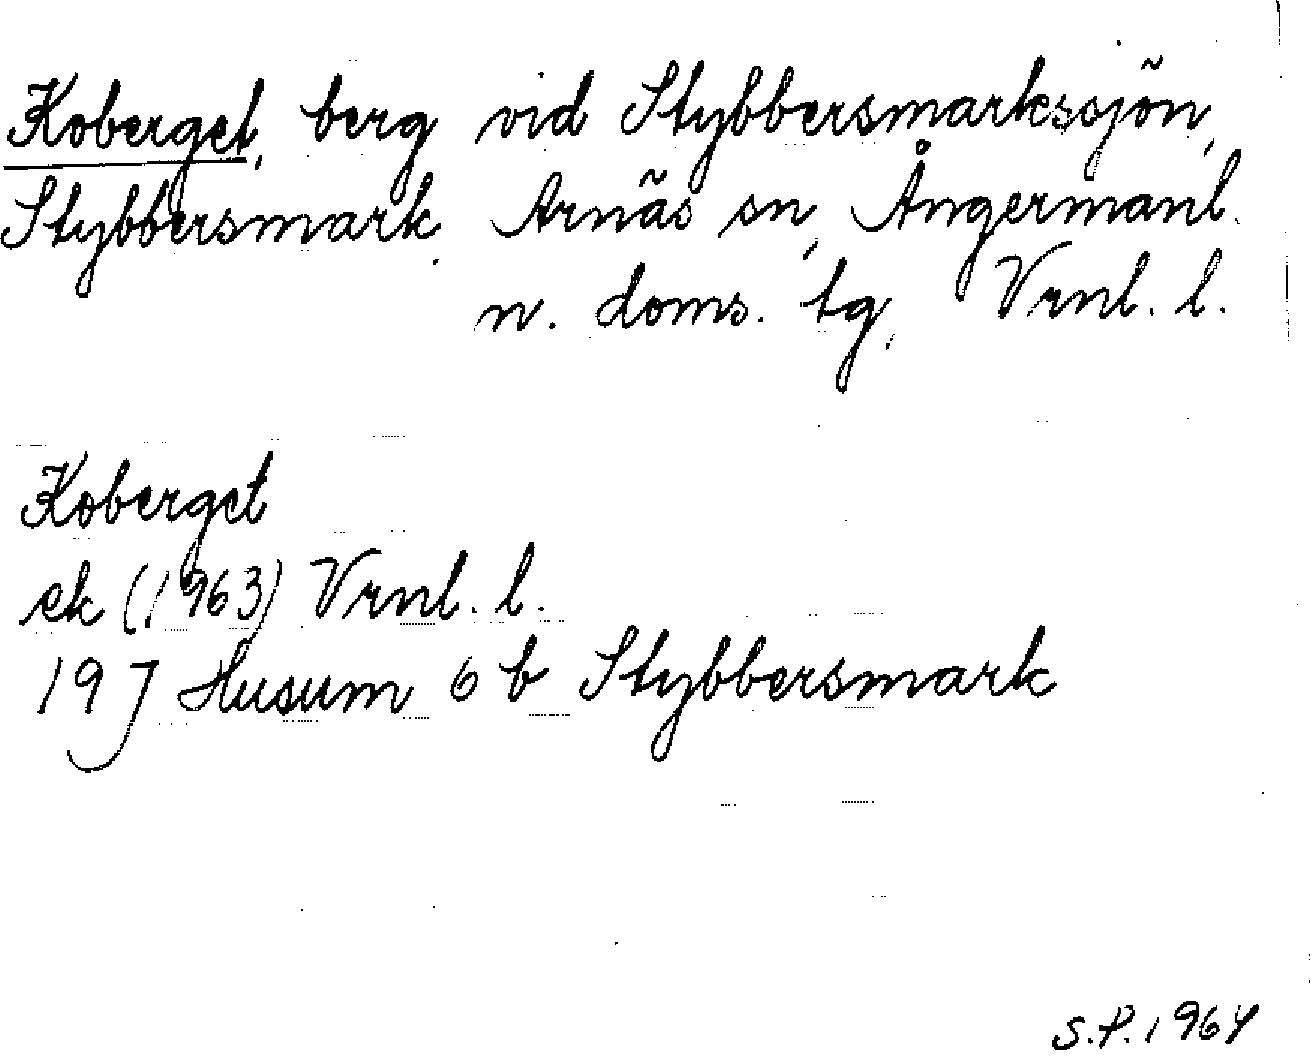 Koberget, berg vid Stybbersmarkssjön,
Stybbersmark. Arnäs sn, Ångermanl.
n. doms. tg, Vrnl. l.
Koberget
ek (1963) Vrnl. l.
19 J Husum 6 b Stybbersmark
S.P. 1964